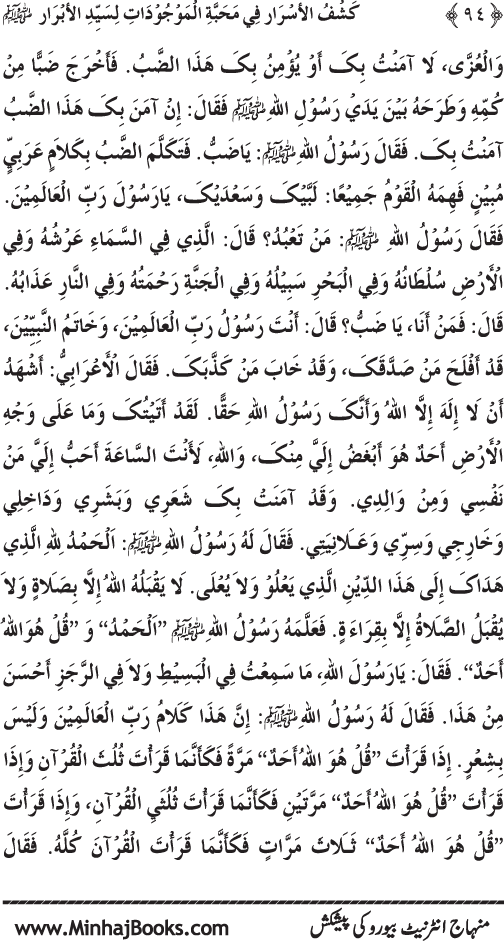 ﴿٩٤﴾ كَشْفُ الْأَسْرَارِ فِي مَحَبَّةِ الْمَوْجُوْدَاتِ لِسَيِّدِ الْأَبْرَارِ ﷺ
وَالْعُزَّى، لَا آمَنْتُ بِكَ أَوْ يُؤْمِنُ بِكَ هَذَا الضَّبُّ. فَأَخْرَجَ ضَبًّا مِنْ
كُمِّهِ وَطَرَحَهُ بَيْنَ يَدَيْ رَسُوْلِ اللهِ ﷺ فَقَالَ: إِنْ آمَنَ بِكَ هَذَا الضَّبُّ
آمَنْتُ بِكَ. فَقَالَ رَسُوْلُ اللهِ ﷺ: يَاضَبُّ. فَتَكَلَّمَ الضَّبُّ بِكَلَامٍ عَرَبِيٍّ
مُبِيْنٍ فَهِمَهُ الْقَوْمُ جَمِيْعًا: لَبَّيْكَ وَسَعْدَيْكَ، يَارَسُوْلَ رَبِّ الْعَالَمِيْنَ.
فَقَالَ رَسُوْلُ اللهِ ﷺ: مَنْ تَعْبُدُ؟ قَالَ: الَّذِي فِي السَّمَاءِ عَرْشُهُ وَفِي
الْأَرْضِ سُلْطَانُهُ وَفِي الْبَحْرِ سَبِيْلُهُ وَفِي الْجَنَّةِ رَحْمَتُهُ وَفِي النَّارِ عَذَابُهُ.
قَالَ: فَمَنْ أَنَا، يَا ضَبُّ؟ قَالَ: أَنْتَ رَسُوْلُ رَبِّ الْعَالَمِيْنَ، وَخَاتَمُ النَّبِيِّيْنَ،
قَدْ أَفْلَحَ مَنْ صَدَّقَكَ، وَقَدْ خَابَ مَنْ كَذَّبَكَ. فَقَالَ الْأَعْرَابِيُّ: أَشْهَدُ
أَنْ لَا إِلَهَ إِلَّا اللهُ وَأَنَّكَ رَسُوْلُ اللهِ حَقًّا. لَقَدْ أَتَيْتُكَ وَمَا عَلَى وَجْهِ
الْأَرْضِ أَحَدٌ هُوَ أَبْغَضُ إِلَيَّ مِنْكَ، وَاللهِ، لَأَنْتَ السَّاعَةَ أَحَبُّ إِلَيَّ مَنْ
نَفْسِي وَمِنْ وَالِدِي. وَقَدْ آمَنْتُ بِكَ شَعَرِي وَبَشَرِي وَدَاخِلِي
وَخَارِجِي وَسِرِّي وَعَلَانِيَتِي. فَقَالَ لَهُ رَسُوْلُ اللهِ ﷺ: الْحَمْدُ لِلهِ الَّذِي
هَدَاكَ إِلَى هَذَا الدِّيْنِ الَّذِي يَعْلُوْ وَلَا يُعْلَى. لَا يَقْبَلُهُ اللهُ إِلَّا بِصَلَاةٍ وَلَا
يُقْبَلُ الصَّلَاةُ إِلَّا بِقِرَاءَةٍ. فَعَلَّمَهُ رَسُوْلُ اللهِ ﷺ ”الْحَمْدُ“ وَ ”قُلْ هُوَ اللهُ
أَحَدٌ“. فَقَالَ: يَارَسُوْلَ اللهِ، مَا سَمِعْتُ فِي الْبَسِيْطِ وَلَا فِي الرَّجَزِ أَحْسَنَ
مِنْ هَذَا. فَقَالَ لَهُ رَسُوْلُ اللهِ ﷺ: إِنَّ هَذَا كَلَامُ رَبِّ الْعَالَمِيْنَ وَلَيْسَ
بِشِعْرٍ. إِذَا قَرَأْتَ ”قُلْ هُوَ اللهُ أَحَدٌ“ مَرَّةً فَكَأَنَّمَا قَرَأْتَ ثُلُثَ الْقُرْآنِ وَإِذَا
قَرَأْتَ ”قُلْ هُوَ اللهُ أَحَدٌ“ مَرَّتَيْنِ فَكَأَنَّمَا قَرَأْتَ ثُلُثَيِ الْقُرْآنِ، وَإِذَا قَرَأْتَ
”قُلْ هُوَ اللهُ أَحَدٌ“ ثَلَاثَ مَرَّاتٍ فَكَأَنَّمَا قَرَأْتَ الْقُرْآنَ كُلَّهُ. فَقَالَ
منہاج انٹرنیٹ بیورو کی پیشکش www.MinhajBooks.com